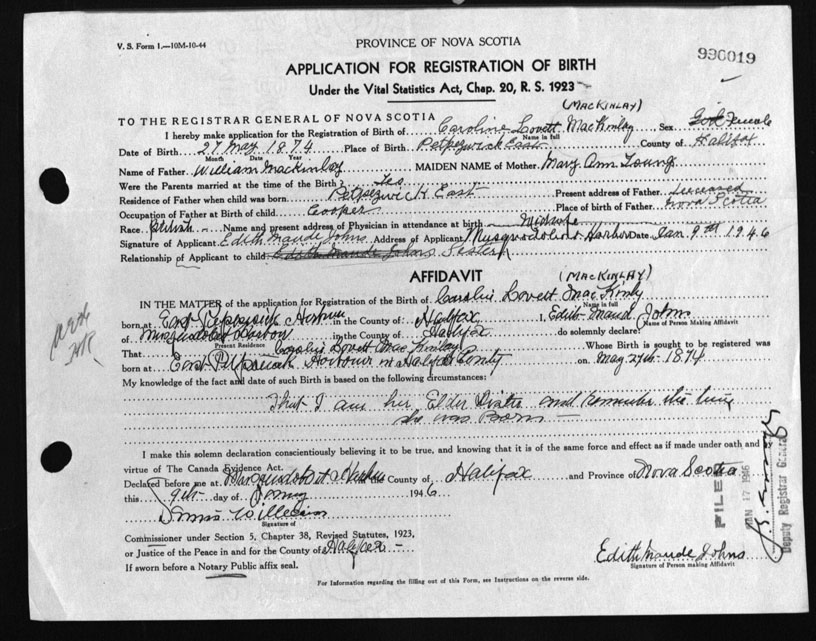 V. S. Form 1.—10M-10-44
PROVINCE OF NOVA SCOTIA
930019
APPLICATION FOR REGISTRATION OF BIRTH
Under the Vital Statistics Act, Chap. 20, R. S. 1923
(MACKINLAY)
TO THE REGISTRAR GENERAL OF NOVA SCOTIA
I hereby make application for the Registration of Birth of Caroline Lovett MacKinley Sex Girl Female
Name in full
Date of Birth 27 May 1874 Place of Birth Petpeswick East County of Halifax
Month Date Year
Name of Father William Mackinlay MAIDEN NAME of Mother Mary Ann Young
Were the Parents married at the time of the Birth? Yes
Residence of Father when child was born Petpeswick East Present address of Father Deceased
Occupation of Father at Birth of child Cooper Place of birth of Father Nova Scotia
Race Name and present address of Physician in attendance at birth Midwife
Signature of Applicant Edith Maude Johns Address of Applicant Musquodoboit Harbor Date Jan 9th 1946
Relationship of Applicant to child Edith Maude Johns Sister
AFFIDAVIT
(MACKINLAY)
IN THE MATTER of the application for Registration of the Birth of Caroline Lovett MacKinly
Name in full
born at East in the County of Halifax I, Edith Maud Johns
Name of Person Making Affidavit
of in the County of Halifax do solemnly declare:
Present Residence
That Caroline Lovett MacKinlay Whose Birth is sought to be registered was
born at East Harbour in Halifax County on May 27th 1874
My knowledge of the fact and date of such Birth is based on the following circumstances:
That I am her Elder Sister and remember the time
she was Born
I make this solemn declaration conscientiously believing it to be true, and knowing that it is of the same force and effect as if made under oath and by
virtue of The Canada Evidence Act.
Declared before me at the County of Halifax and Province of Nova Scotia
this 9th day of 1946
Signature of
Commissioner under Section 5, Chapter 38, Revised Statutes, 1923,
or Justice of the Peace in and for the County of Halifax
If sworn before a Notary Public affix seal.
Edith Maude Johns
Signature of Person making Affidavit
For Information regarding the filling out of this Form, see Instructions on the reverse side.
FILED
JAN 17 1946
Deputy Registrar General